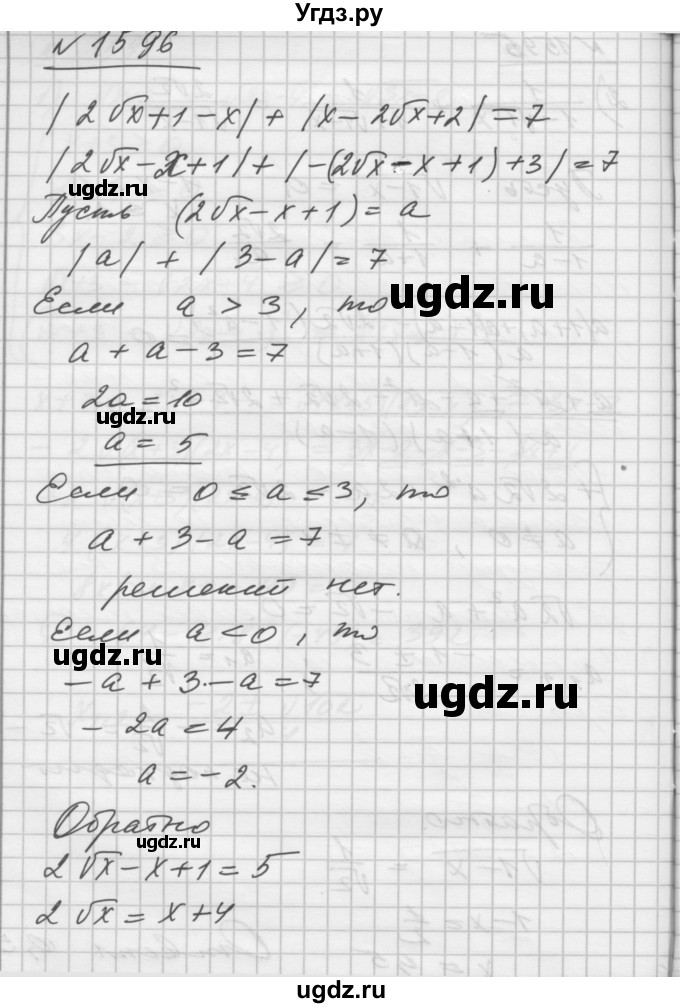 Угдз.ру
№1596
|2√x+1-x|+|x-2√x+2|=7
|2√x-x+1|+|-(2√x-x+1)+3|=7
ugdz.ru
Пусть (2√x-x+1)=a
|a|+|3-a|=7
ugdz.ru
Если a>3, то
a+a-3=7
2a=10
ugdz.ru
a=5
Если 0≤a≤3, то
a+3-a=7
решений нет.
Если a<0, то
ugdz.ru
-a+3-a=7
ugdz.ru
-2a=4
a=-2.
Обратно
ugdz.ru
2√x-x+1=5
2√x=x+4
ugdz.ru